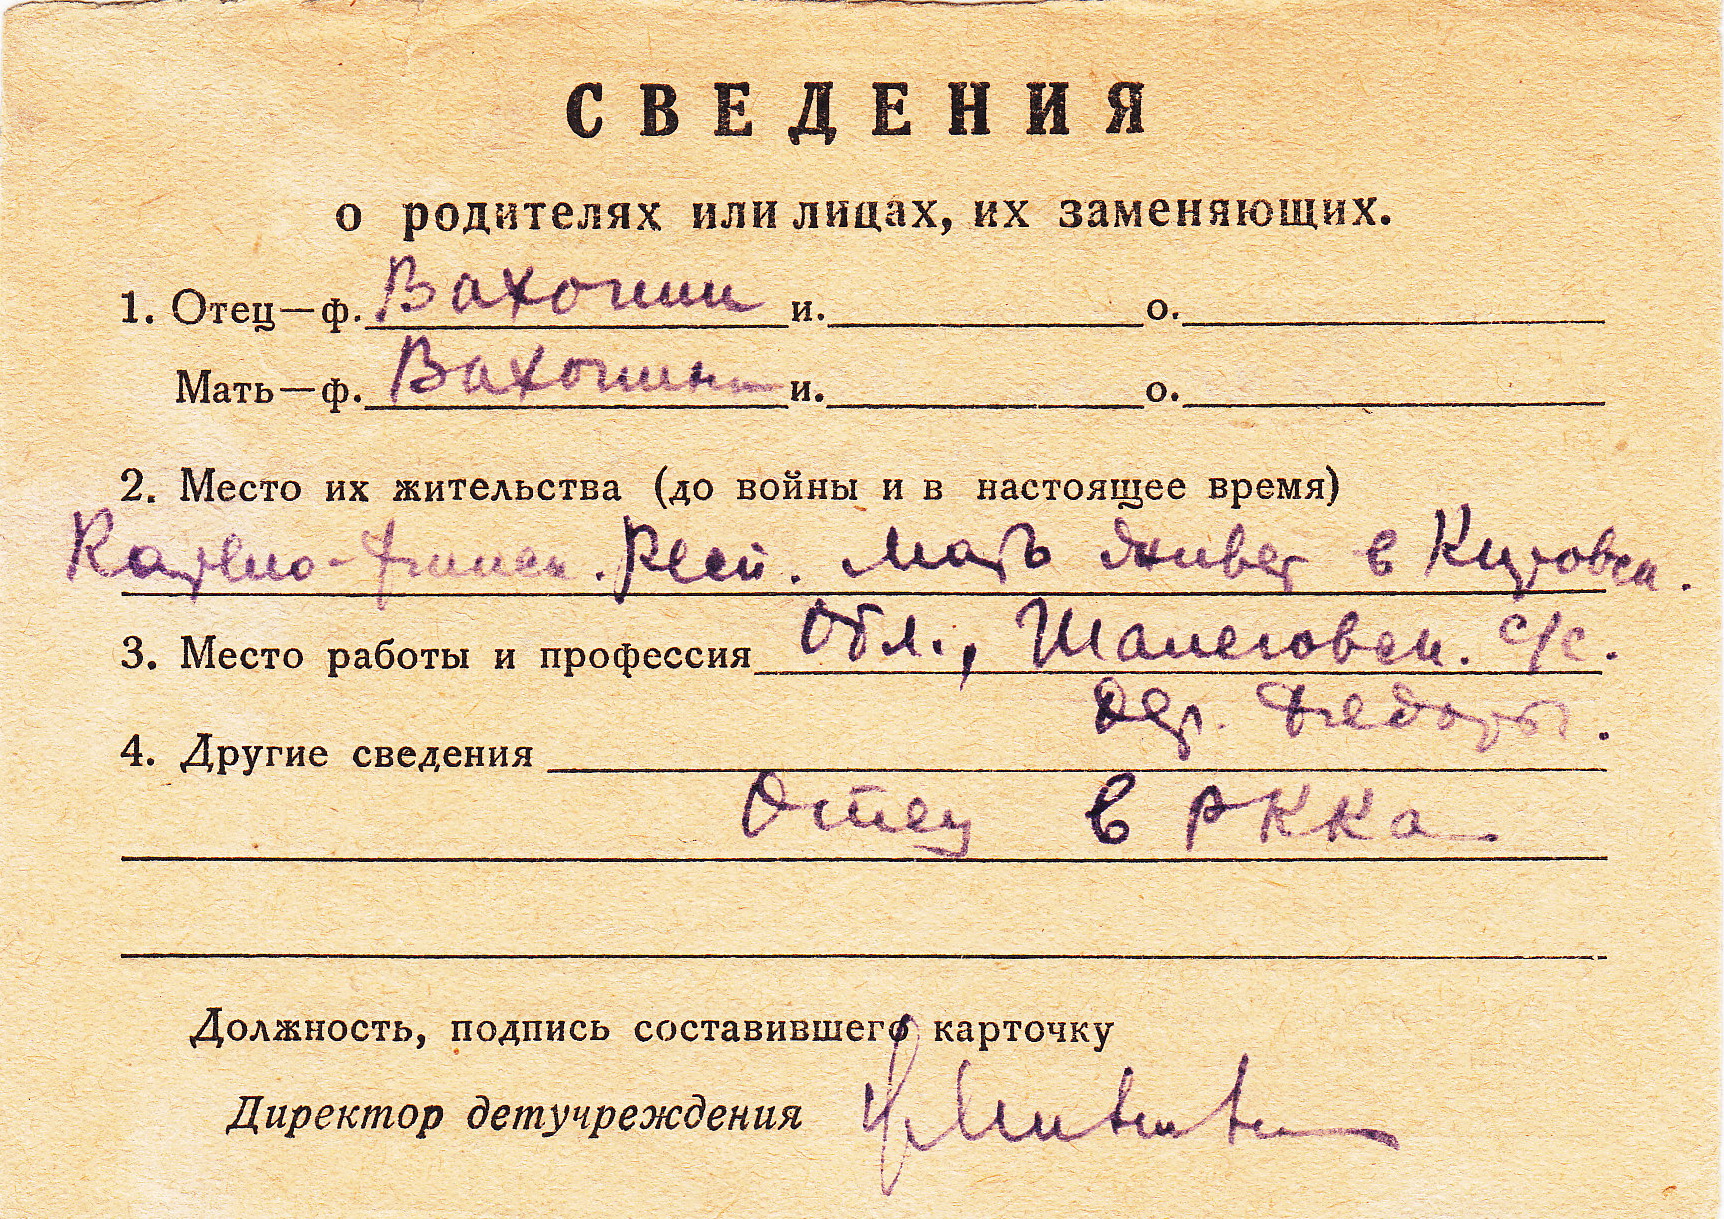 СВЕДЕНИЯ
о родителях или лицах, их заменяющих.
1. Отец—ф. Вахонин и. о.
Мать—ф. Вахонина и. о.
2. Место их жительства (до войны и в настоящее время)
Карело-Финск. Респ. Мать живет в Кировск.
3. Место работы и профессия Обл., Шалеговск. с/с.
дер. Федоры.
4. Другие сведения
Отец в РККА
Должность, подпись составившего карточку
Директор детучреждения